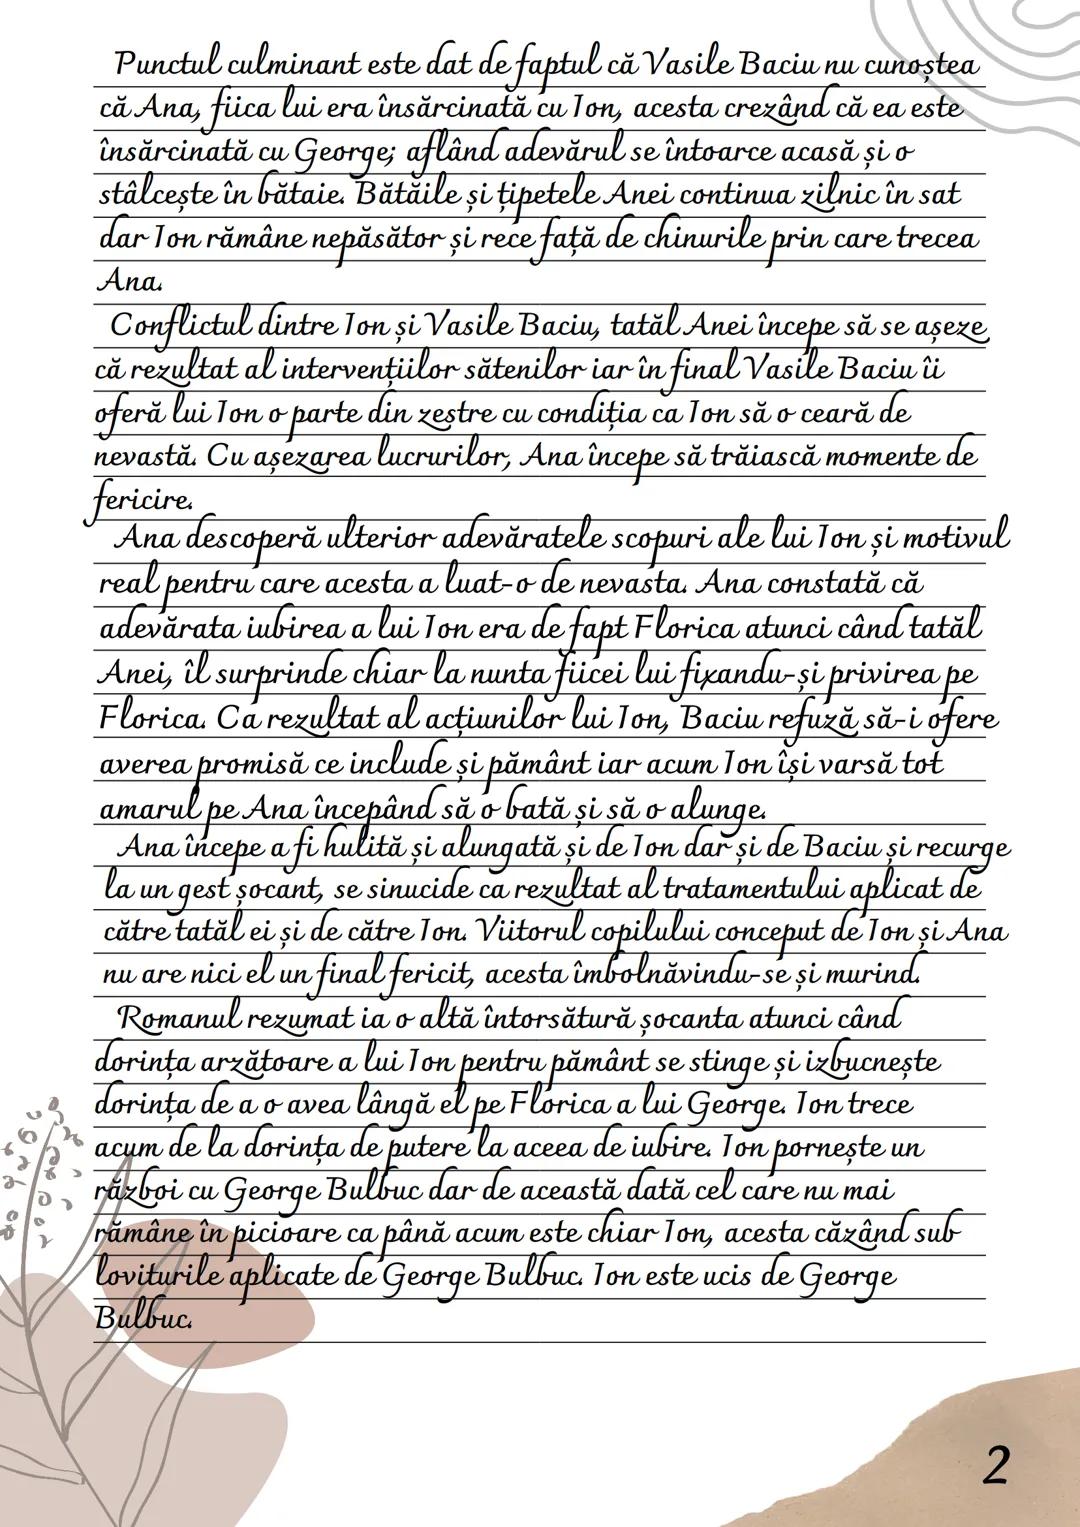 Punctul culminant este dat de faptul că Vasile Baciu nu cunoștea
că Ana, fiica lui era însărcinată cu Ion, acesta crezând că ea este
însărcinată cu George; aflând adevărul se întoarce acasă și o
stâlcește în bătaie. Bătăile și țipetele Anei continua zilnic în sat
dar Ion rămâne nepăsător și rece față de chinurile prin care trecea
Ana.
Conflictul dintre Ion și Vasile Baciu, tatăl Anei începe să se așeze
că rezultat al intervențiilor sătenilor iar în final Vasile Baciu îi
oferă lui Ion o parte din zestre cu condiția ca Ion să o ceară de
nevastă. Cu așezarea lucrurilor, Ana începe să trăiască momente de
fericire.
Ana descoperă ulterior adevăratele scopuri ale lui Ion și motivul
real pentru care acesta a luat-o de nevasta. Ana constată că
adevărata iubirea a lui Ion era de fapt Florica atunci când tatăl
Anei, îl surprinde chiar la nunta fiicei lui fixandu-și privirea pe
Florica. Ca rezultat al acțiunilor lui Ion, Baciu refuză să-i ofere
averea promisă ce include și pământ iar acum Ion își varsă tot
amarul pe Ana începând să o bată și să o alunge.
Ana începe a fi hulită și alungată și de Ion dar și de Baciu și recurge
la un gest șocant, se sinucide ca rezultat al tratamentului aplicat de
către tatăl ei și de către Ion. Viitorul copilului conceput de Ion și Ana
nu are nici el un final fericit, acesta îmbolnăvindu-se și murind.
Romanul rezumat ia o altă întorsătură șocanta atunci când
dorința arzătoare a lui Ion pentru pământ se stinge și izbucnește
dorința de a o avea lângă el pe Florica a lui George. Ion trece
acum de la dorința de putere la aceea de iubire. Ion pornește un
război cu George Bulbuc dar de această dată cel care nu mai
rămâne în picioare ca până acum este chiar Ion, acesta căzând sub
loviturile aplicate de George Bulbuc. Ion este ucis de George
Bulbuc.
2